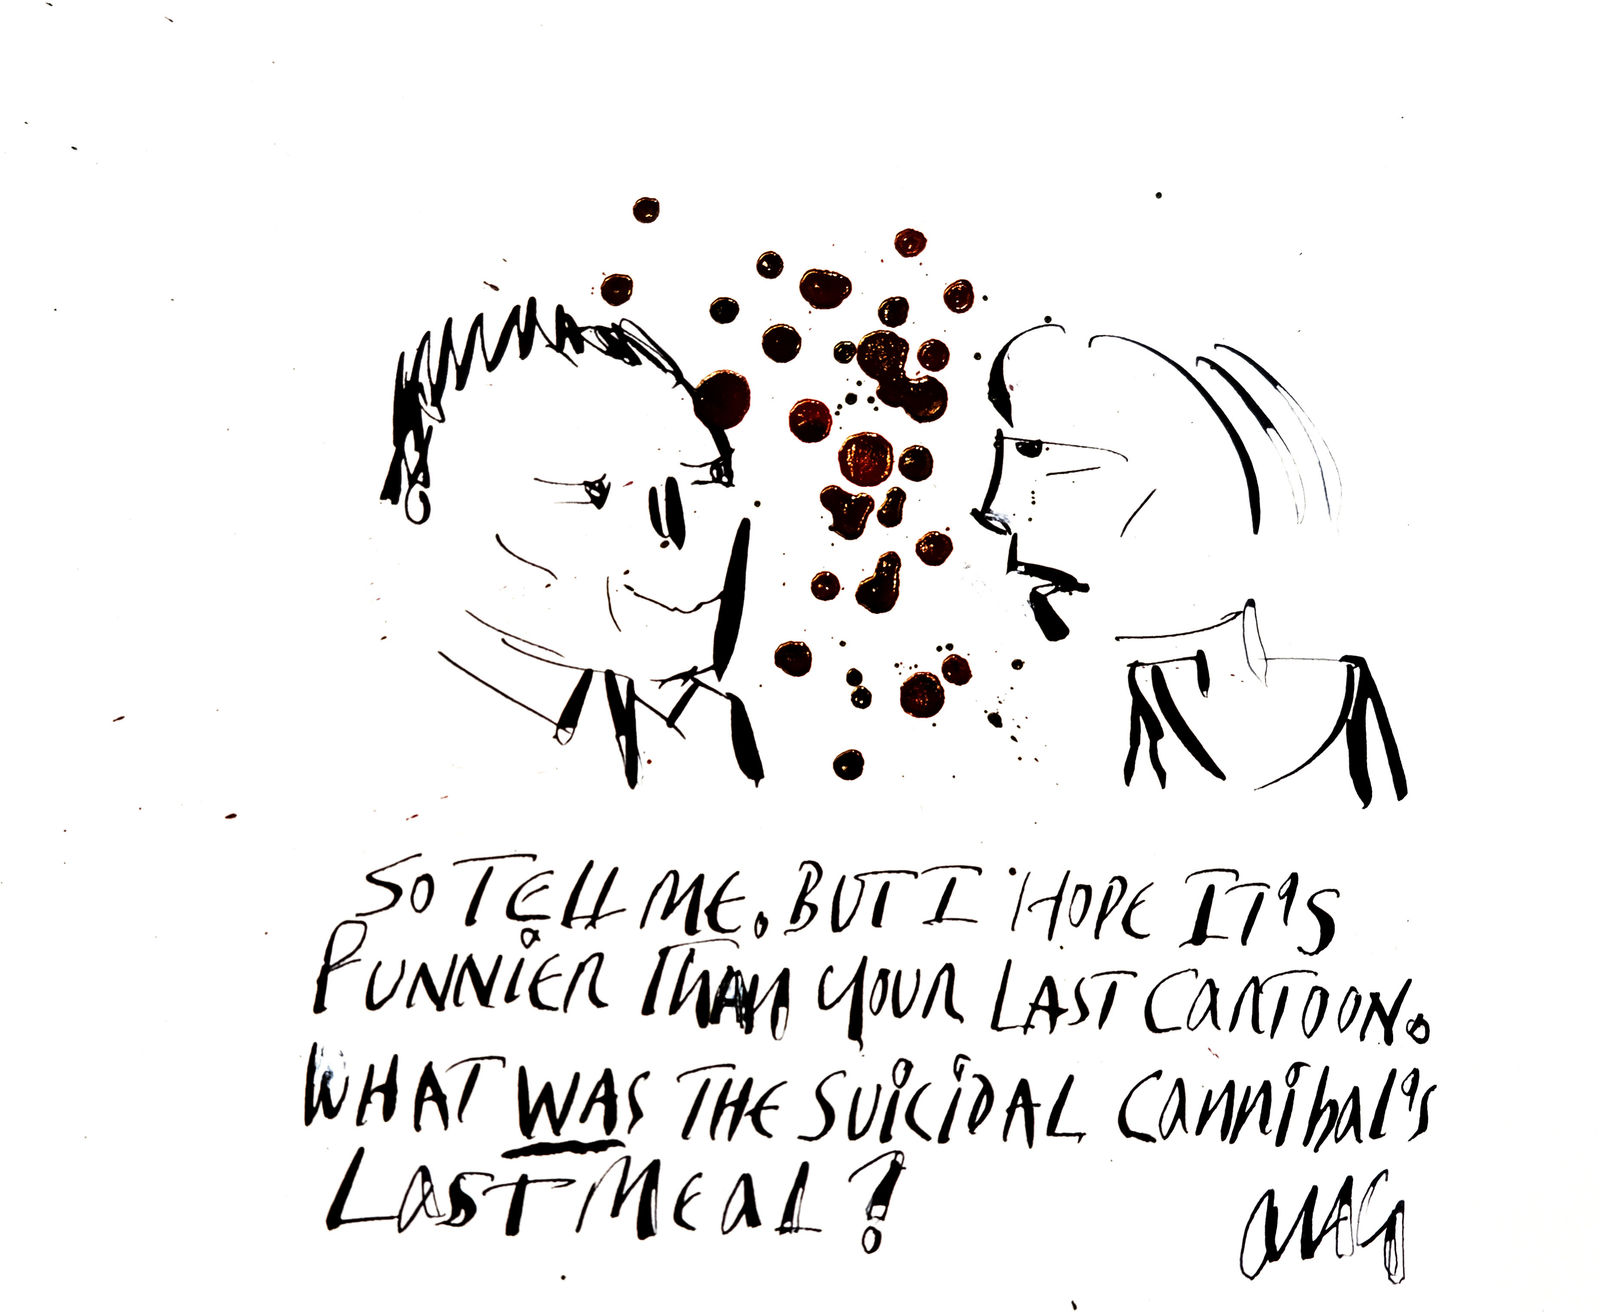 SO TELL ME. BUT I HOPE IT'S
FUNNIER THAN YOUR LAST CARTOON.
WHAT WAS THE SUICIDAL CANNIBAL'S
LAST MEAL?